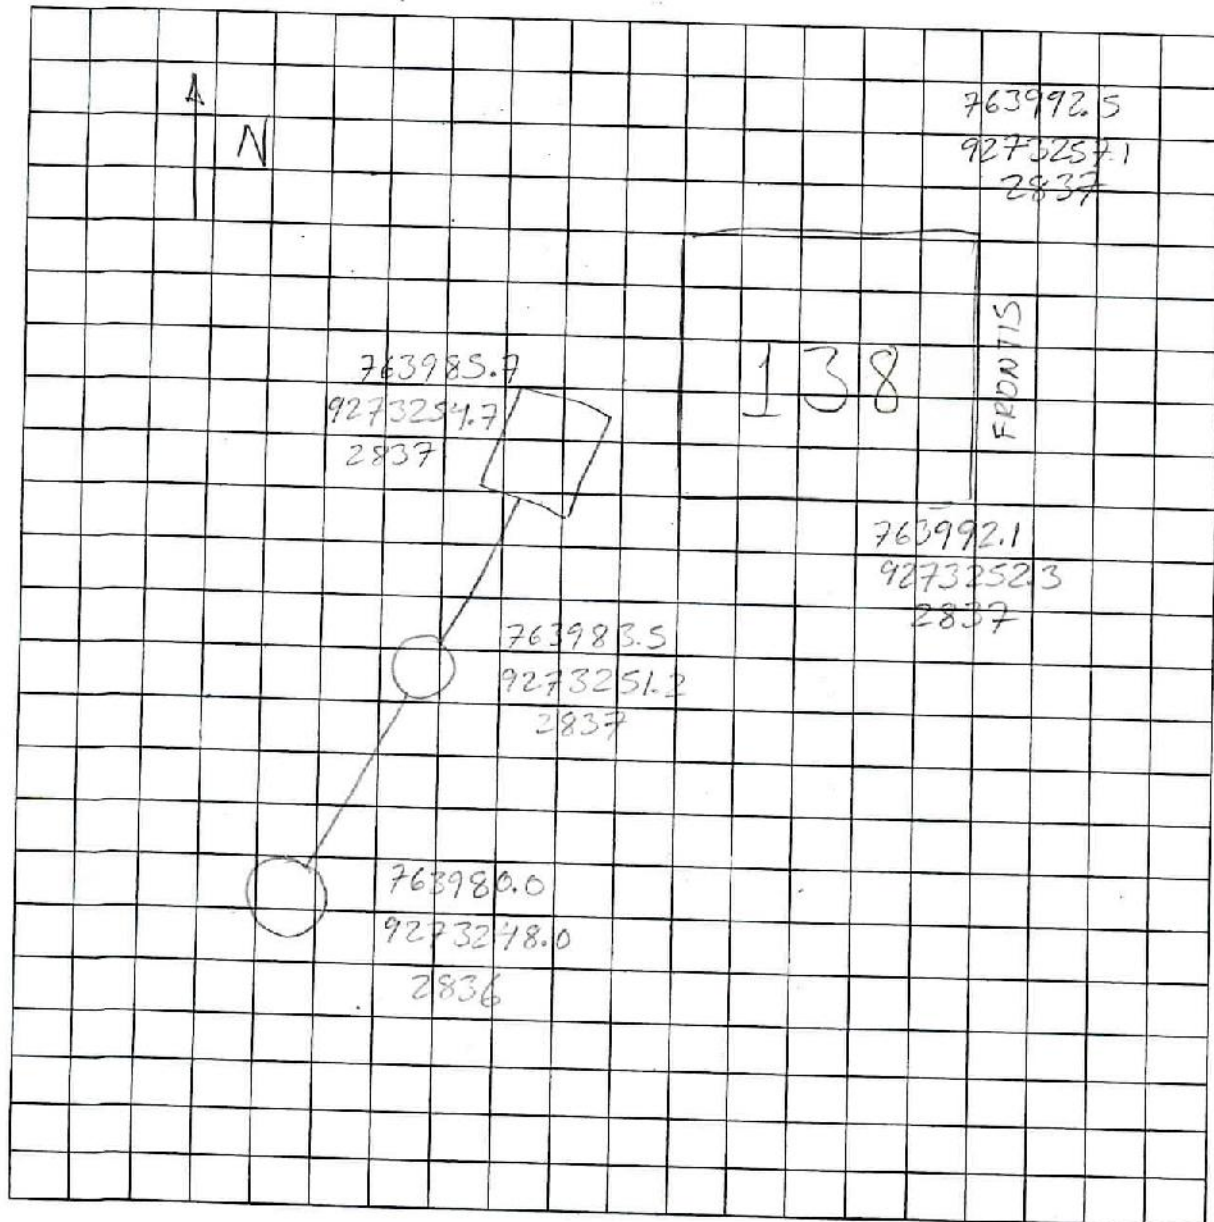 N
763992.5
9273257.1
2837
138
FRONTIS
763985.7
9273254.7
2837
763992.1
9273252.3
2837
763983.5
9273251.2
2837
763980.0
9273248.0
2836